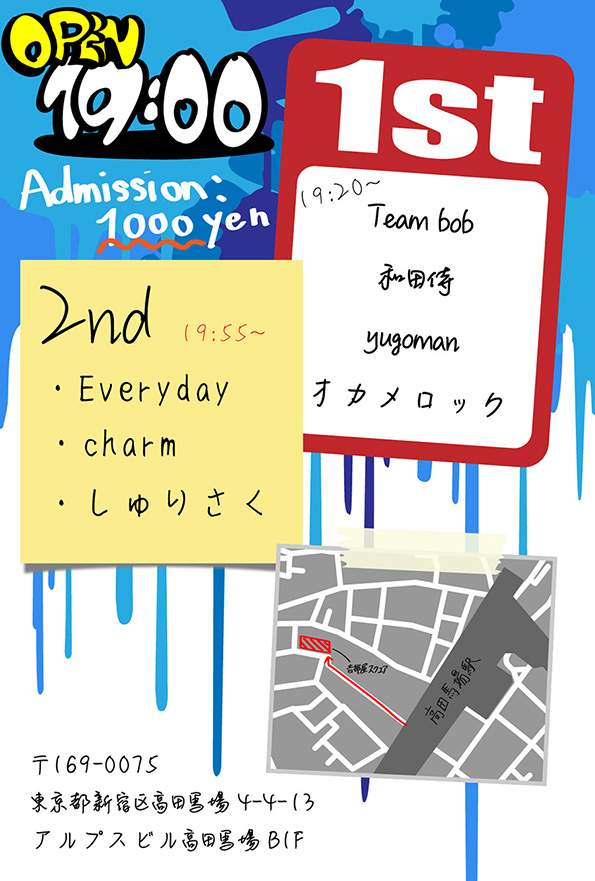 OPEN
19:00
Admission:
1000 yen
1st
19:20~
Team bob
和田侍
yugoman
オカメロック
2nd 19:55~
・Everyday
・charm
・しゅりさく
音部屋スクエア
高田馬場駅
〒169-0075
東京都新宿区高田馬場4-4-13
アルプスビル高田馬場B1F